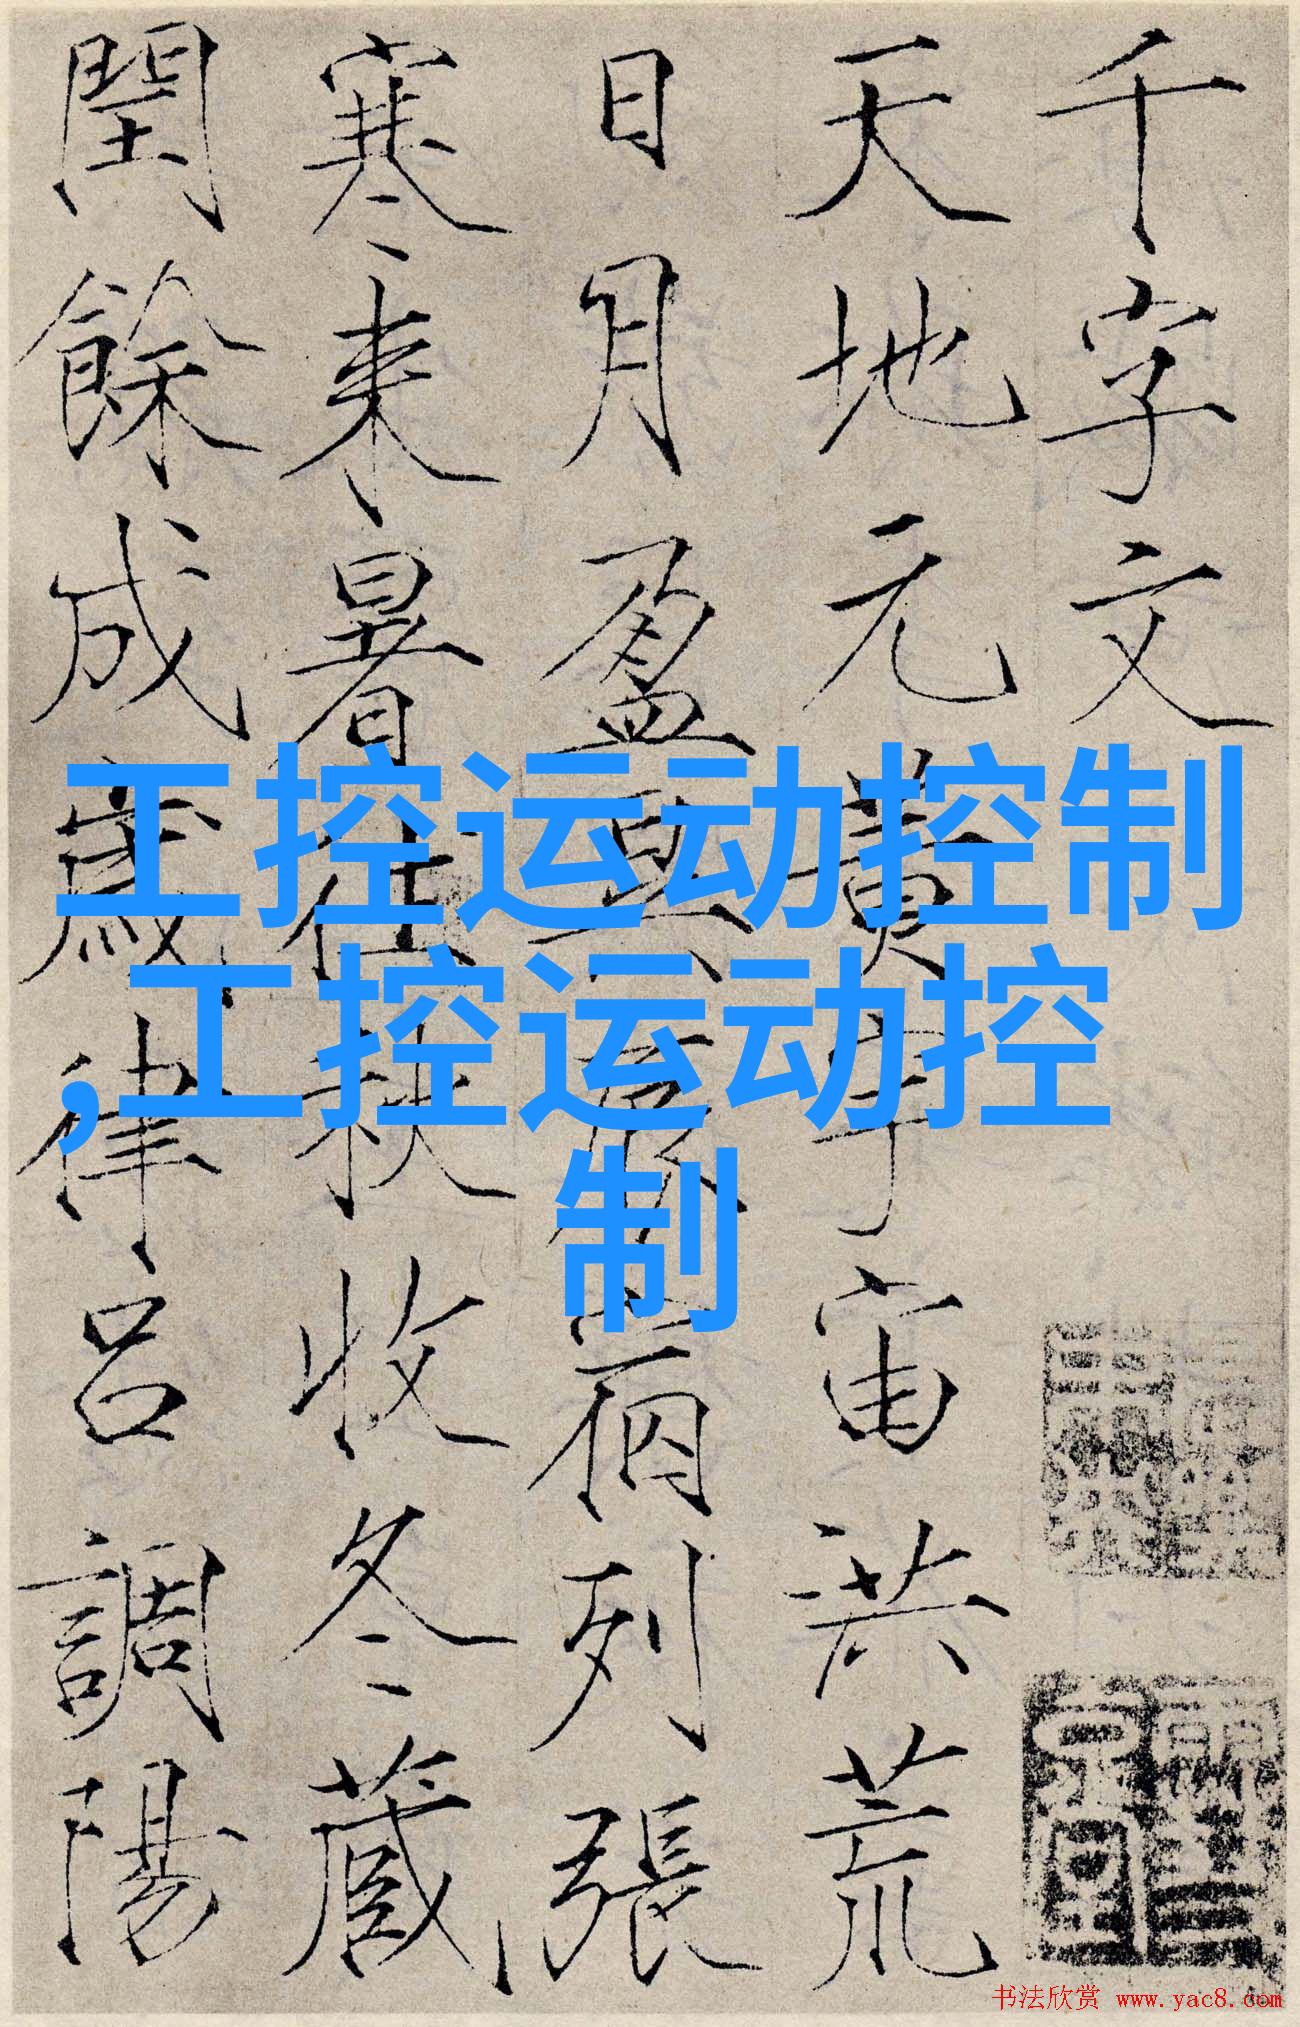 千字文
天地元黃宇宙洪荒
日月盈昃辰宿列張
寒来暑往秋收冬藏
閏餘成歲律呂調陽
工控运动控制
,工控运动控
制
书法欣赏 www.yac8.com